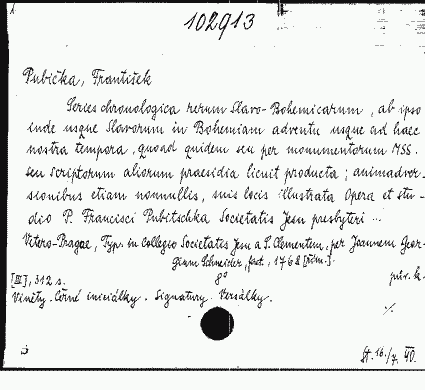 102913
Pubička, František
Series chronologica rerum Slavo-Bohemicarum, ab ipso
inde usque Slavorum in Bohemiam adventu usque ad haec
nostra tempora, quoad quidem seu per monumentorum MSS.
seu scriptorum aliorum praesidia licuit producta; animadver-
sionibus etiam nonnullis, suis locis illustrata Opera et stu-
dio P. Francisci Pubitschka Societatis Jesu presbyteri ...
Vetero-Pragae, Typ. in collegio Societatis Jesu a S. Clementem, per Joannem Geor-
gium Schneider, fact., 1768 [řím.].
[III], 312 s. 8° pův. k.
Viněty. Černé iniciálky. Signatury. Versálky.
%
St. 16./7. 40.